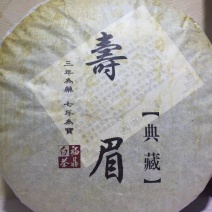 壽眉
三年為藥 七年為寶
【典藏】
福鼎
白茶